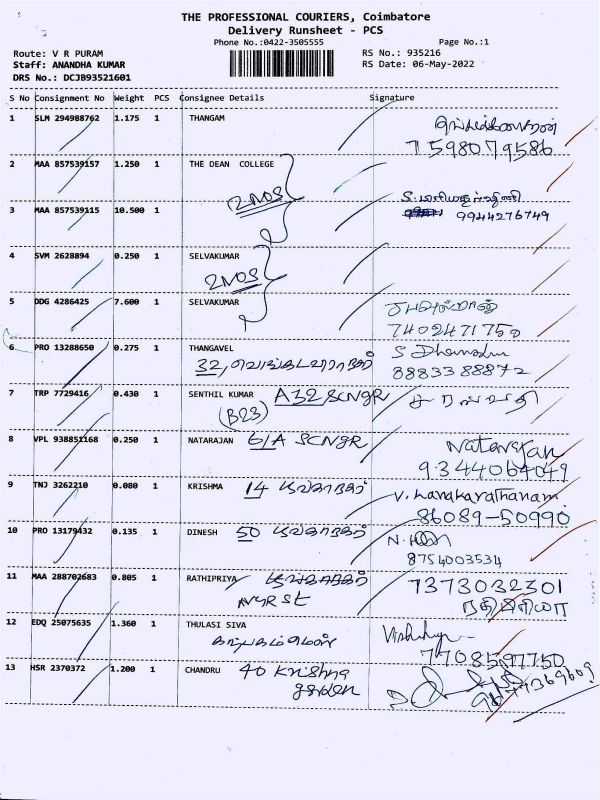 THE PROFESSIONAL COURIERS, Coimbatore
Delivery Runsheet - PCS
Phone No.:0422-3505555 Page No.:1
Route: V R PURAM RS No.: 935216
Staff: ANANDHA KUMAR RS Date: 06-May-2022
DRS No.: DCJB93521601
S No Consignment No Weight PCS Consignee Details Signature
1 SLM 294988762 1.175 1 THANGAM
7598079586
2 MAA 857539157 1.250 1 THE DEAN COLLEGE
2NOS
3 MAA 857539115 10.500 1 9944276749
4 SVM 2628894 0.250 1 SELVAKUMAR
2NOS
5 DDG 4286425 7.600 1 SELVAKUMAR
7402471750
6 PRO 13288650 0.275 1 THANGAVEL
32, வெங்கடாநகர் 8883388872
7 TRP 7729416 0.430 1 SENTHIL KUMAR A32 SCNGR
(B23)
8 VPL 938851168 0.250 1 NATARAJAN 61A SCNGR Natarajan
9344064049
9 TNJ 3262210 0.080 1 KRISHMA 14 V. Kanakarathanam
86089-50990
10 PRO 13179432 0.135 1 DINESH 50
8754003534
11 MAA 288702683 0.805 1 RATHIPRIYA 7373032301
ரதிபிரியா
12 EDQ 25075635 1.360 1 THULASI SIVA
7708597750
13 HSR 2370372 1.200 1 CHANDRU 40 Krishna
garden